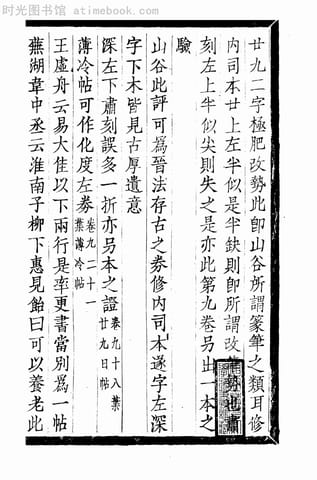 时光图书馆 · atimebook.com
廿九二字極肥改勢此卽山谷所謂篆筆之類耳修
內司本廿上左半似是半缺則卽所謂改勢也肅
刻左上半似尖則失之是亦此第九卷另出一本之
驗
山谷此評可爲晉法存古之券修內司本遂字左深
字下木皆見古厚遺意
深左下肅刻誤多一折亦另本之證卷九十八葉廿九日帖
薄冷帖可作化度左劵卷九二十一葉薄冷帖
王虛舟云易大佳以下兩行是率更書當別爲一帖
蕪湖韋中丞云淮南子柳下惠見飴曰可以養老此